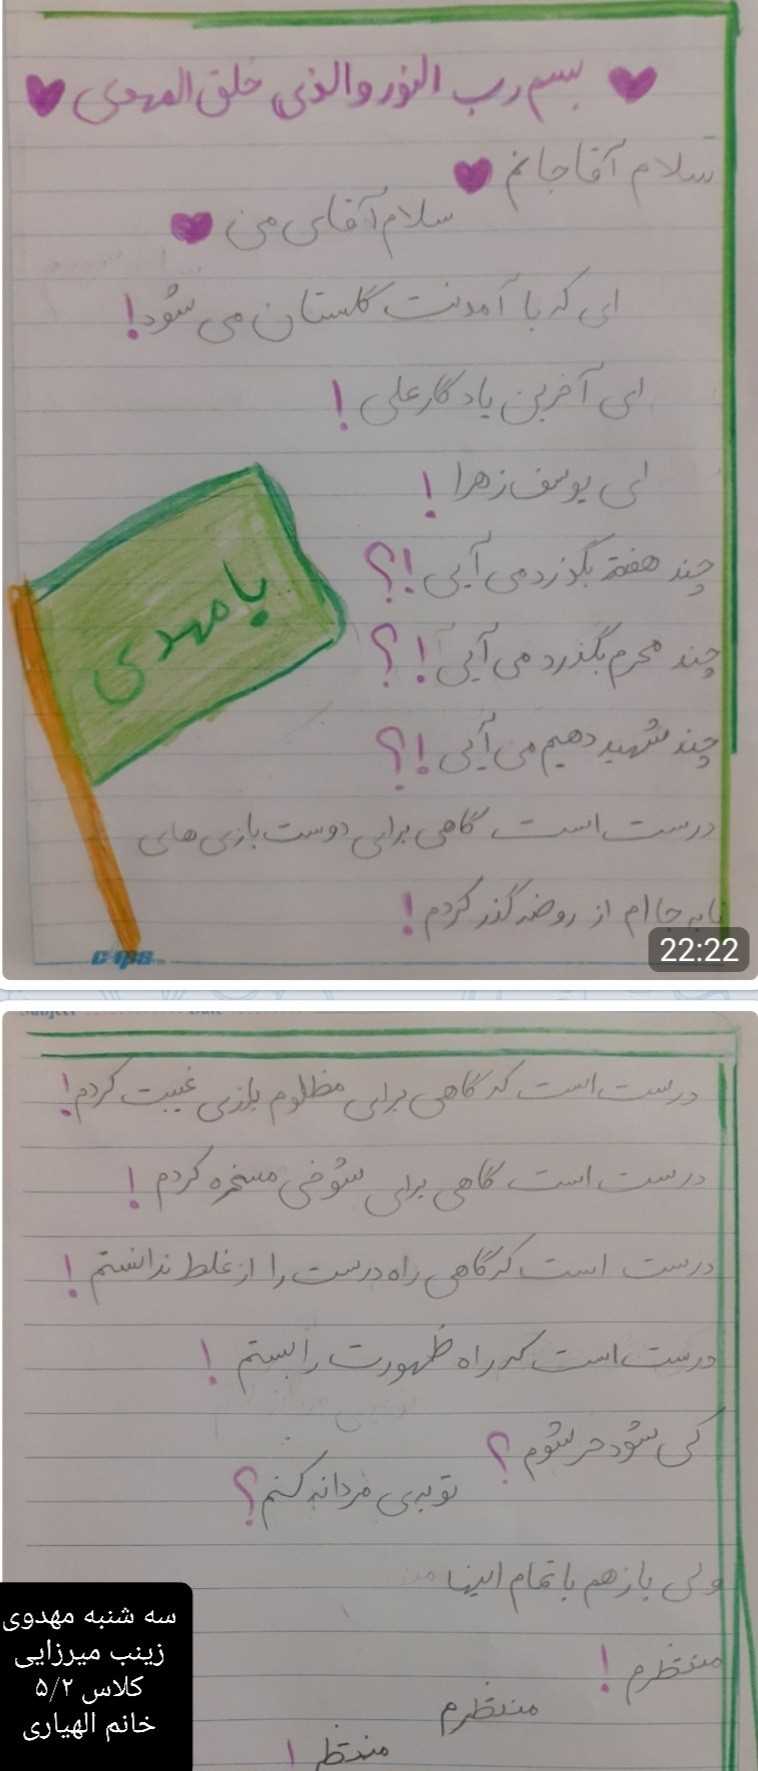 بسم رب النور والذی خلق المهدی
سلام آقا جانم
سلام آقای من
ای که با آمدنت گلستان می شود!
ای آخرین یادگار علی!
ای یوسف زهرا!
چند هفته بگذرد می آیی!؟
چند محرم بگذرد می آیی!؟
چند شهید دهیم می آیی!؟
یا مهدی
درست است گاهی برای دوست بازی های
نابه جا ام از روضه گذر کردم!
clips
22:22
Subject
Date
درست است که گاهی برای مظلوم بازی غیبت کردم!
درست است گاهی برای شوخی مسخره کردم!
درست است که گاهی راه درست را از غلط ندانستم!
درست است که راه ظهورت را بستم!
کی شود حر شوم؟
توبه ی مردانه کنم؟
ولی باز هم با تمام اینا
منتظرم!
منتظرم
منتظر!
سه شنبه مهدوی
زینب میرزایی
کلاس ۵/۲
خانم الهیاری